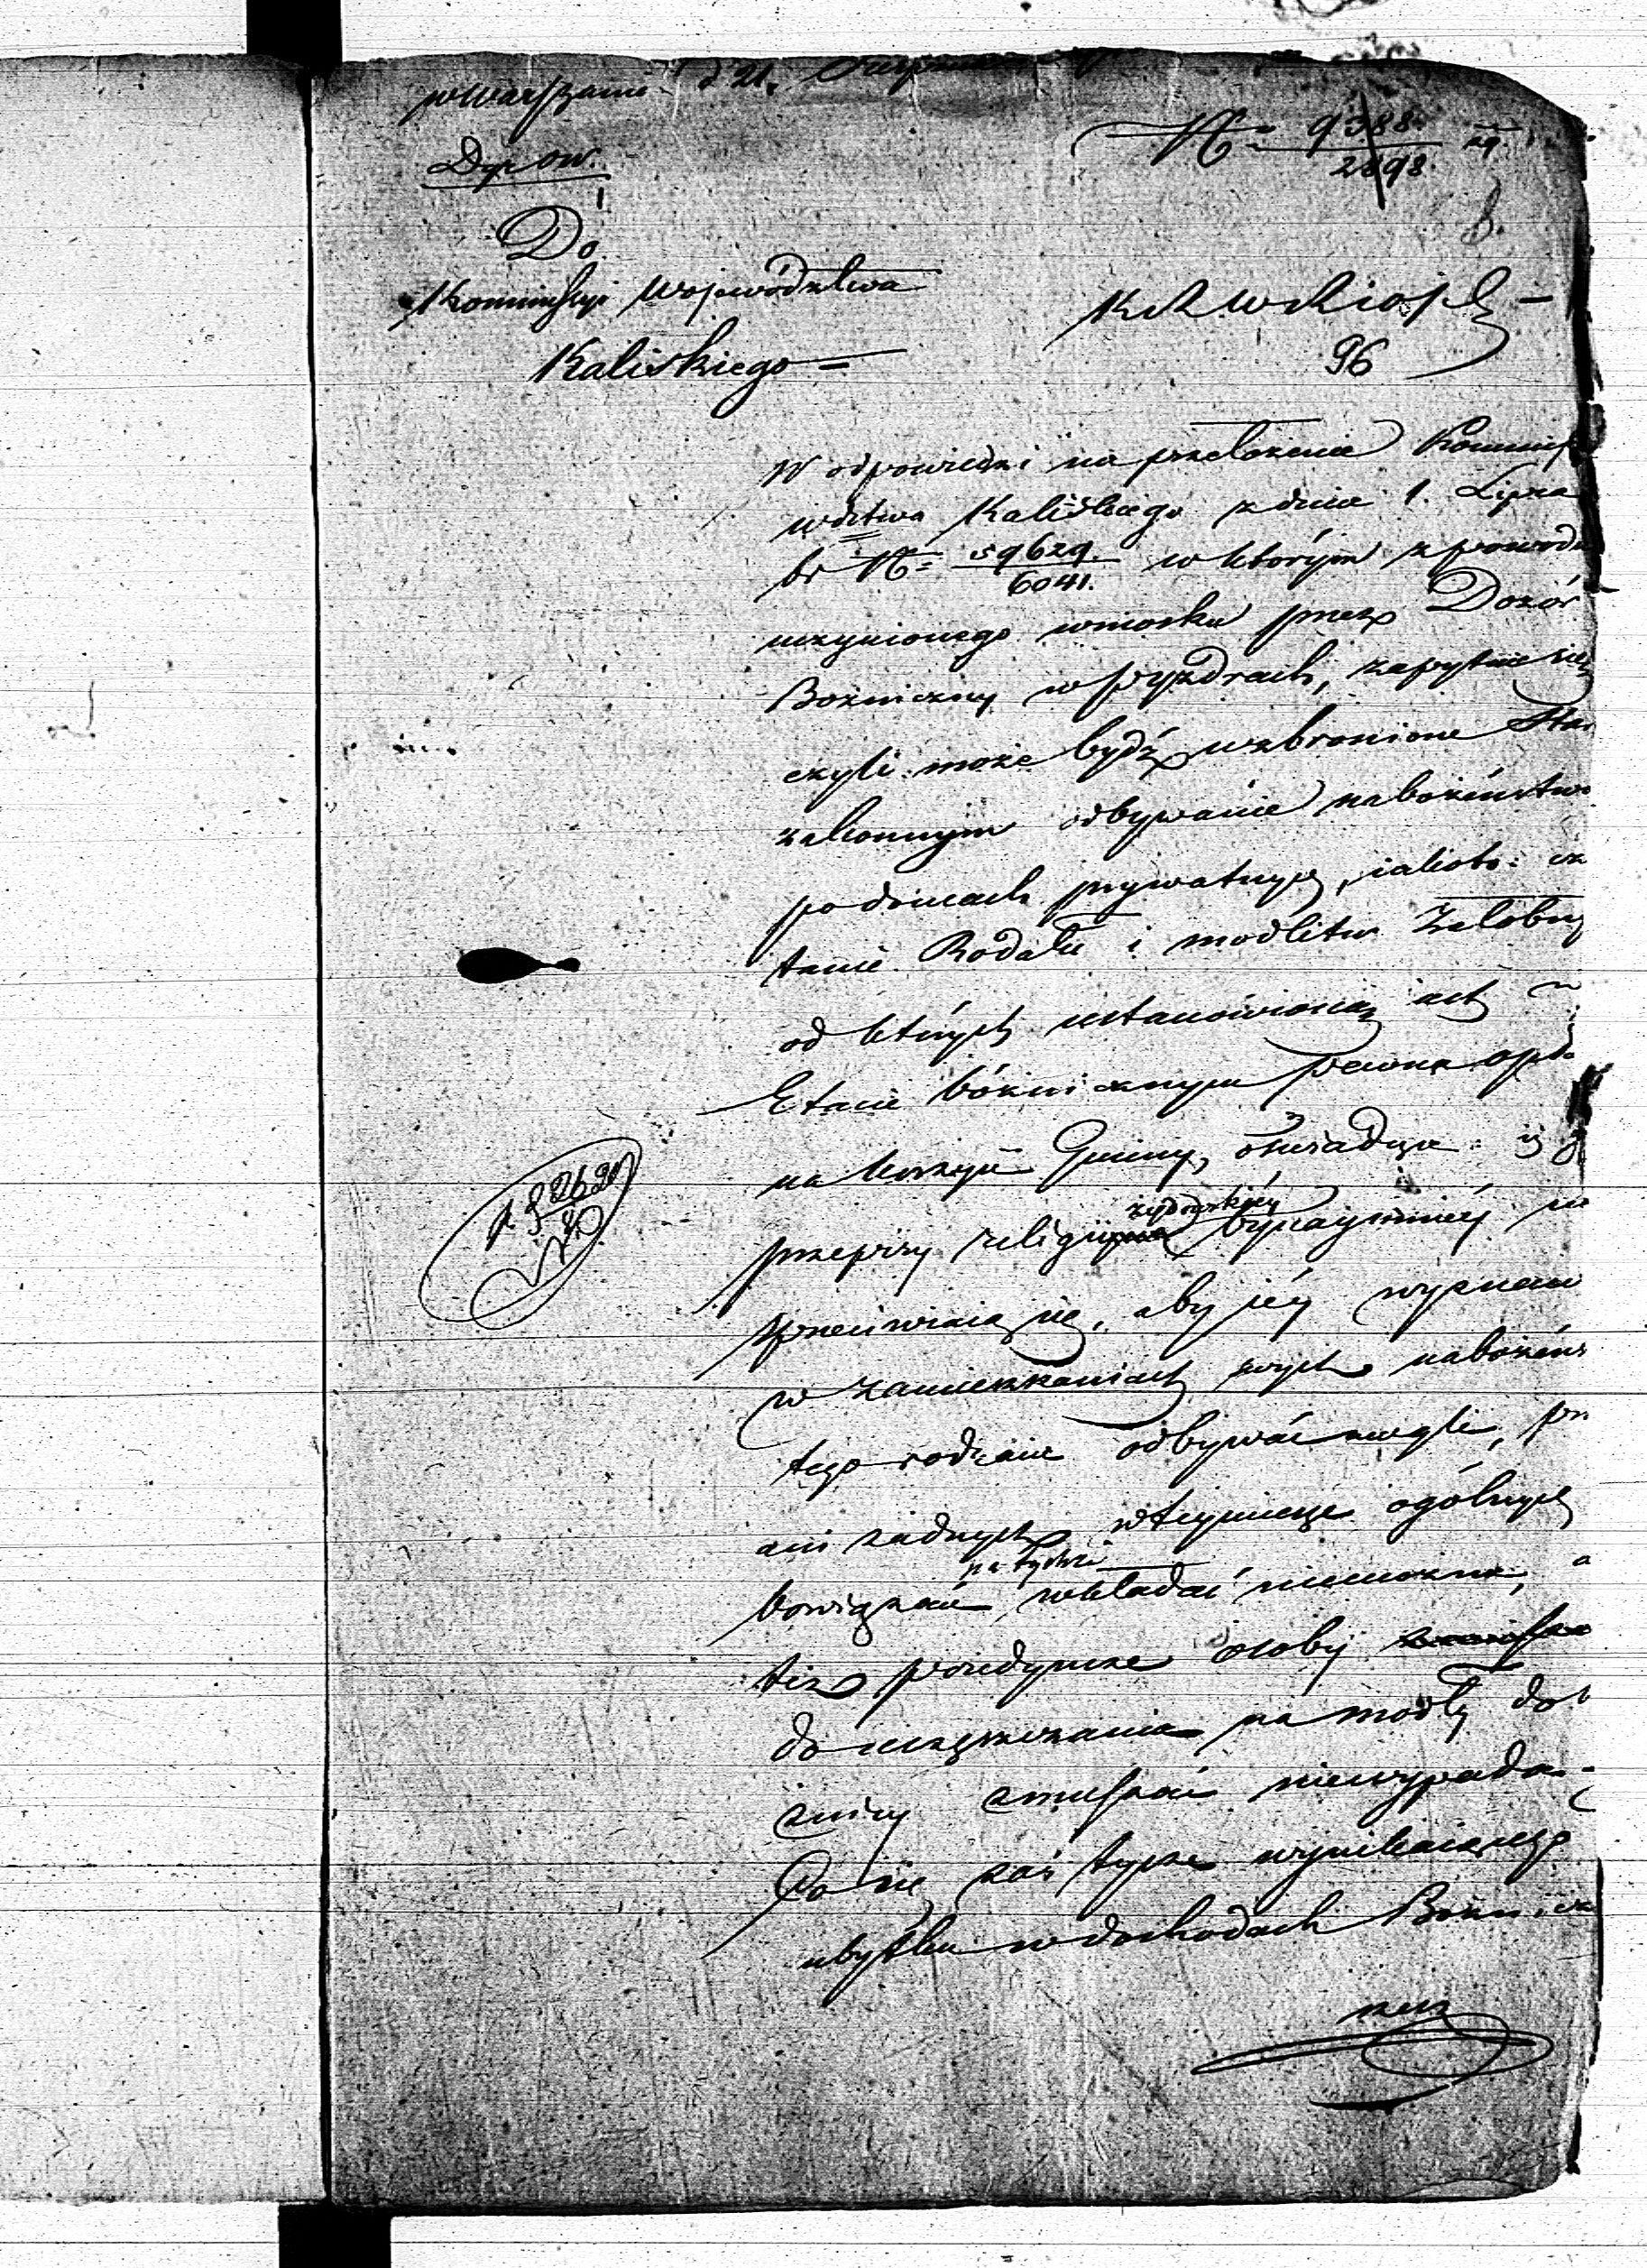 w Warszawie d 21.
N 9388. / 2898.
Dyr OW.
Do
Kommissyi Województwa
Kaliskiego
96
W odpowiedzi na przełożenie Kommiss
wdztwa Kaliskiego z dnia 1. Lipca
br N 59629. / 6041. w którym z powodu
uczynionego wniosku przez Dozór
Bożniczny w Pyzdrach, zapytuie się
czyli może bydź wzbronione Sta
zakonnym odbywanie nabożeństwa
po domach prywatnych, iakoto: cz
tanie Rodału i modlitw żałobny
od których ustanowioną iest
Etacie bóżnicznym pewna opł
na korzyść Gminy, oświadcza iż
przepisy religii żydowskiéy bynaymniéy ni
sprzeciwiaią się, aby iéy wyznaw
w zamieszkaniach swych nabożeńs
tego rodzaiu odbywać mogli, prz
ani żadnych w tey mierze ogólnych
bowiązań na tychże wkładać niemożna, a
też poiedyncze osoby
do uczęszczania na modły do b
żnicy zmuszać niewypada.
Co się zaś tycze wynikaiącego
ubytku w dochodach Bóżnicz